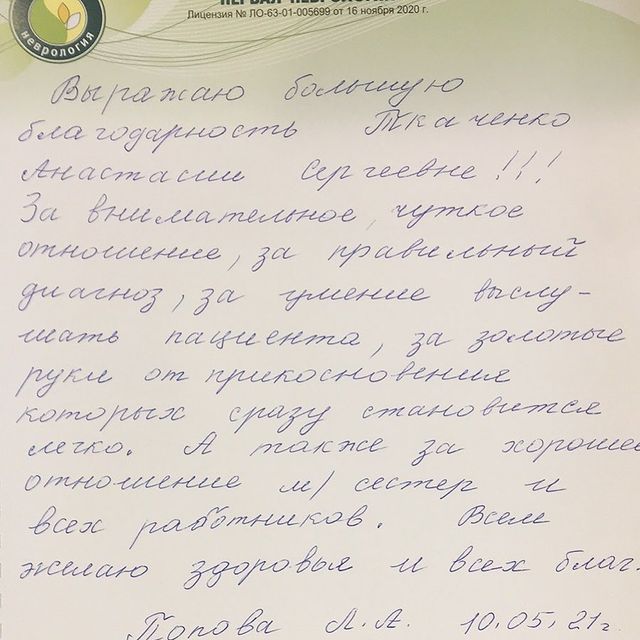 неврология
Лицензия № ЛО-63-01-005699 от 16 ноября 2020 г.
Выражаю большую
благодарность Ткаченко
Анастасии Сергеевне!!!
За внимательное, чуткое
отношение, за правильный
диагноз, за умение выслу-
шать пациента, за золотые
руки от прикосновения
которых сразу становится
легко. А также за хорошее
отношение м/сестер и
всех работников. Всем
желаю здоровья и всех благ.
Попова Л.А. 10.05.21г.